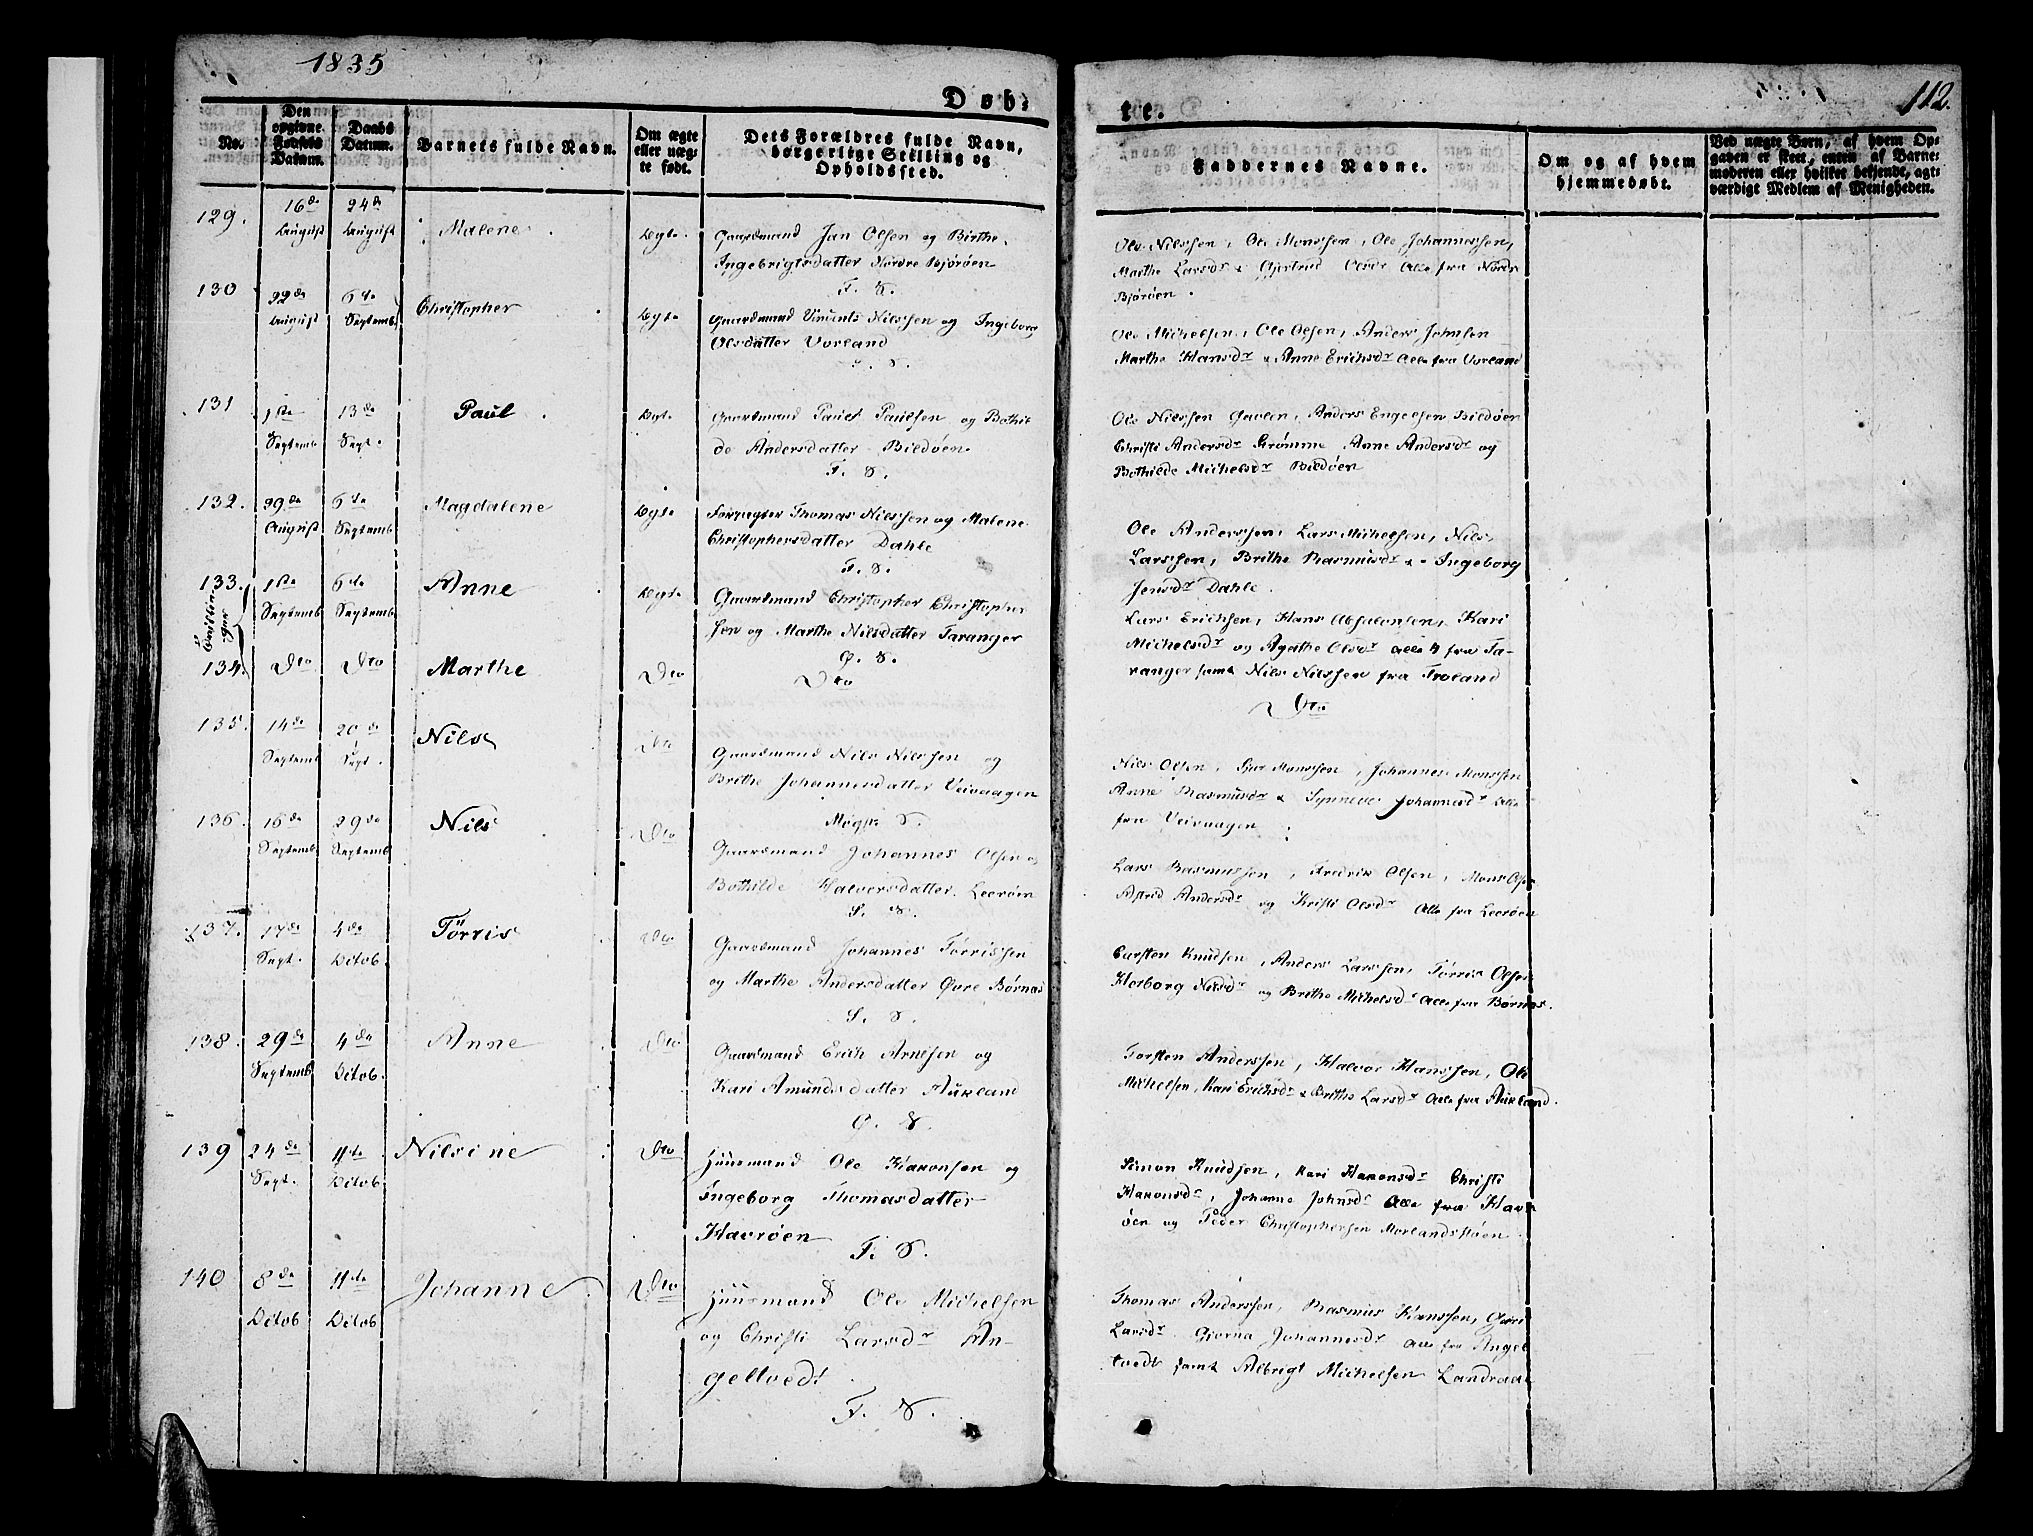 1835
112.
Døb-
te.
No.
Den opgivne Fødsels Datum.
Daabs Datum.
Barnets fulde Navn.
Om ægte eller uægte født.
Dets Forældres fulde Navn, borgerlige Stilling og Opholdssted.
Faddernes Navne.
Om og af hvem hjemmedøbt.
Ved uægte Børn, af hvem Opgaven er skeet, enten af Barnemoderen eller hvilket bekjendt, agtværdigt Medlem af Menigheden.
129. 16de August 24de August Malene Ægte
Gaardmand Jan Olsen og Birthe
Ingebrigtsdatter Nordre Bjørøen
F. S.
Ole Nilssen, Ole Monssen, Ole Johannessen,
Marthe Larsdr & Gjertrud Olsdr Alle fra Nordr
Bjørøen.
130 22de August 6te Septemb. Christopher Ægte
Gaardmand Vincents Nilssen og Ingeborg
Olsdatter Vorland
F. S.
Ole Michelsen, Ole Olsen, Anders Johnsen
Marthe Hansdr & Anne Erichsdr Alle fra Vorland
131 1ste Septemb. 13de Sept. Paul Ægte
Gaardmand Paul Paulsen og Bothil
de Andersdatter Bildøen
F. S.
Ole Nilssen Gavlen, Anders Engelsen Bildøen
Christi Andersdr Krømme Anne Andersdr og
Bothilde Michelsdr Bildøen
132. 29de August 6te Septemb Magdalene Ægte
Forpagter Thomas Nilssen og Malene
Christophersdatter Dahle
F. S.
Ole Anderssen, Lars Michelsen, Nils
Larssen, Brithe Rasmusdr & Ingeborg
Jensdr Dahle.
133. Tvillinger 1ste Septemb 6te Septemb Anne Ægte
Gaardmand Christopher Christopher
sen og Marthe Nilsdatter Taranger
Ø. S.
Lars Erichsen, Hans Absalonsen, Kari
Michelsdr og Agathe Olsdr alle 4 fra Ta-
ranger samt Nils Nilssen fra Troland
134. Dto Dto Marthe Dto
Dto
Dto
135. 14de Septemb 20de Sept. Nils Dto
Gaardmand Nils Nilssen og
Brithe Johannesdatter Veivaagen
Møgst. S.
Nils Olsen, Monssen, Johannes Monssen
Anne Rasmusdr & Synneve Johannesdr Alle
fra Veivaagen
136. 16de Septemb 29de Septemb Nils Dto
Gaardmand Johannes Olsen og
Bothilde Halversdatter Leerøen
S. S.
Lars Rasmussen, Fredrik Olsen, Mons Olsen
Astrid Andersdr og Kristi Olsdr Alle fra Leerøen
137. 17de Sept. 4de Octob. Tørris Dto
Gaardmand Johannes Tørrissen
og Marthe Andersdatter Øvre Børnes
S. S.
Carsten Knudsen, Anders Larssen, Tørris Olsen
Herborg Nilsdr og Brithe Michelsdr Alle fra Børnes.
138. 29de Septemb 4de Octob. Anne Dto
Gaardmand Erich Arnesen og
Kari Amundsdatter Aukland
Ø. S.
Torsten Anderssen, Halvor Hanssen, Ole
Michelsen, Kari Erichsdr & Brithe Larsdr Alle fra Aukland.
139 24de Sept. 11te Octob. Nilsine Dto
Huusmand Ole Haaonsen og
Ingeborg Thomasdatter
Havrøen
F. S.
Simon Knudsen, Kari Hakonsdr Christi
Hakonsdr, Johanne Johnsdr Alle fra Havr
øen og Peder Christophersen Morlandstøen
140 8de Octob 11te Octob Johanne. Dto
Huusmand Ole Michelsen
og Christi Larsdr An-
geltvedt
F. S.
Thomas Anderssen, Rasmus Hanssen, Guri
Larsdr Gjorna Johannesdr alle fra Angel
tvedt samt Albrigt Michelsen Landraa